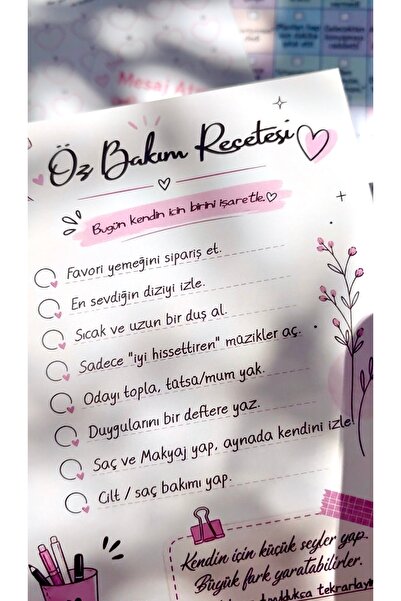 Mesaj
Öz Bakım Reçetesi
Bugün kendin için birini işaretle
Favori yemeğini sipariş et.
En sevdiğin diziyi izle.
Sıcak ve uzun bir duş al.
Sadece "iyi hissettiren" müzikler aç.
Odayı topla, tütsü/mum yak.
Duygularını bir deftere yaz.
Saç ve Makyaj yap, aynada kendini izle
Cilt / saç bakımı yap.
Kendin için küçük şeyler yap.
Büyük fark yaratabilirler.
tekrarlayın